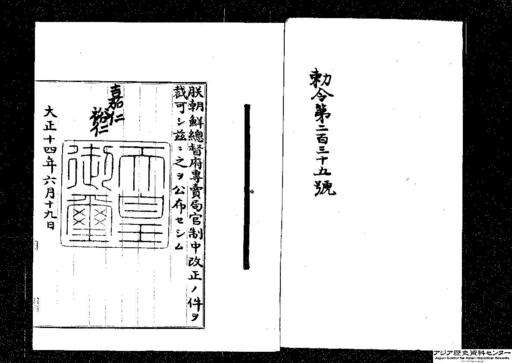 勅令第二百三十五號
朕朝鮮總督府專賣局官制中改正ノ件ヲ
裁可シ茲ニ之ヲ公布セシム
嘉仁
裕仁
天皇
御璽
大正十四年六月十九日
アジア歴史資料センター
Japan Center for Asian Historical Records